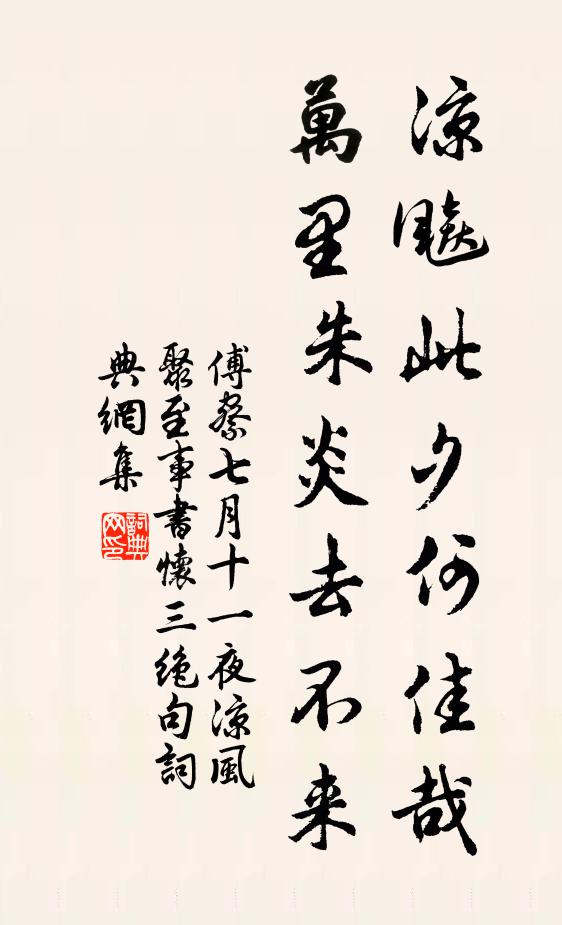 涼飈此夕何佳哉
萬里朱炎去不来
傅察七月十一夜涼風
聚至事書懷三絶句詞
典網集
詞典網印